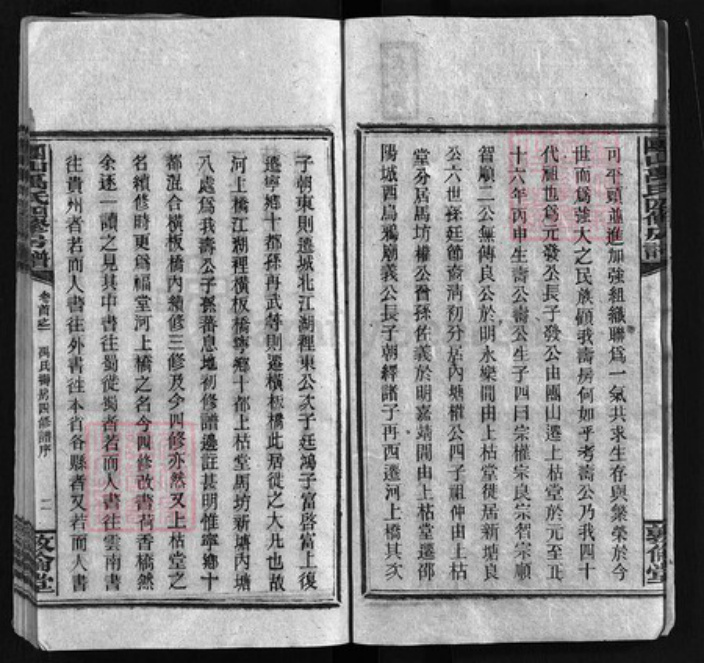 可平頭並進加強組織聯為一氣共求生存與繁榮於今
世而為強大之民族顧我壽房何如乎考壽公乃我四十
代祖也為元發公長子發公由團山遷上枯堂於元至正
十六年丙申生壽公壽公生子四曰宗權宗良宗智宗順
智順二公無傳良公於明永樂間由上枯堂徙居新塘良
公六世孫廷節裔清初分居內塘權公四子祖仲由上枯
堂分居馬坊權公曾孫佐義於明嘉靖間由上枯堂遷邵
陽城西烏鴉廟義公長子朝繹諸子再西遷河上橋其次
子朝東則遷城北江湖裡東公次子廷鴻子富啓富上復
遷寧鄉十都孫再武等則遷橫板橋此居徙之大凡也故
河上橋江湖裡橫板橋寧鄉十都上枯堂馬坊新塘內塘
八處為我壽公子孫蕃息地初修譜邊註甚明惟寧鄉十
都混合橫板橋內續修三修及今四修亦然又上枯堂之
名續修時更為福堂河上橋之名今四修改書荷香橋然
余逐一讀之見其中書往蜀徙蜀者若而人書往雲南書
往貴州者若而人書往外書往本省各縣者又若而人書
團山禹氏四修房譜
卷首之一
禹氏壽房四修譜序
二
敦倫堂